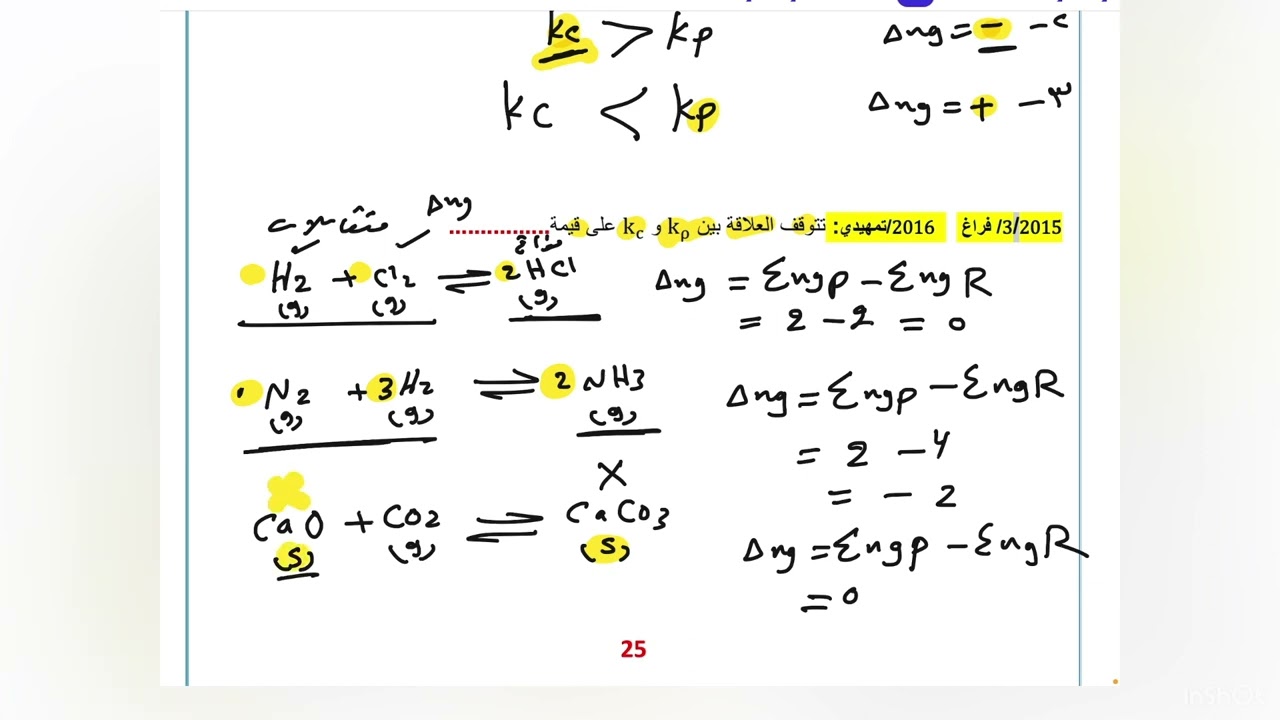 kc > kp
Δng = - -٢
kc < kp
Δng = + -٣
3/2015/ فراغ 2016/تمهيدي: تتوقف العلاقة بين kp و kc على قيمة.................
Δng
H2 (g) + Cl2 (g) ⇌ 2HCl (g)
Δng = Σngp - ΣngR
= 2 - 2 = 0
N2 (g) + 3H2 (g) ⇌ 2NH3 (g)
Δng = Σngp - ΣngR
= 2 - 4
= - 2
X
CaO (s) + CO2 (g) ⇌ CaCO3 (s)
Δng = Σngp - ΣngR
= 0
25
InShO